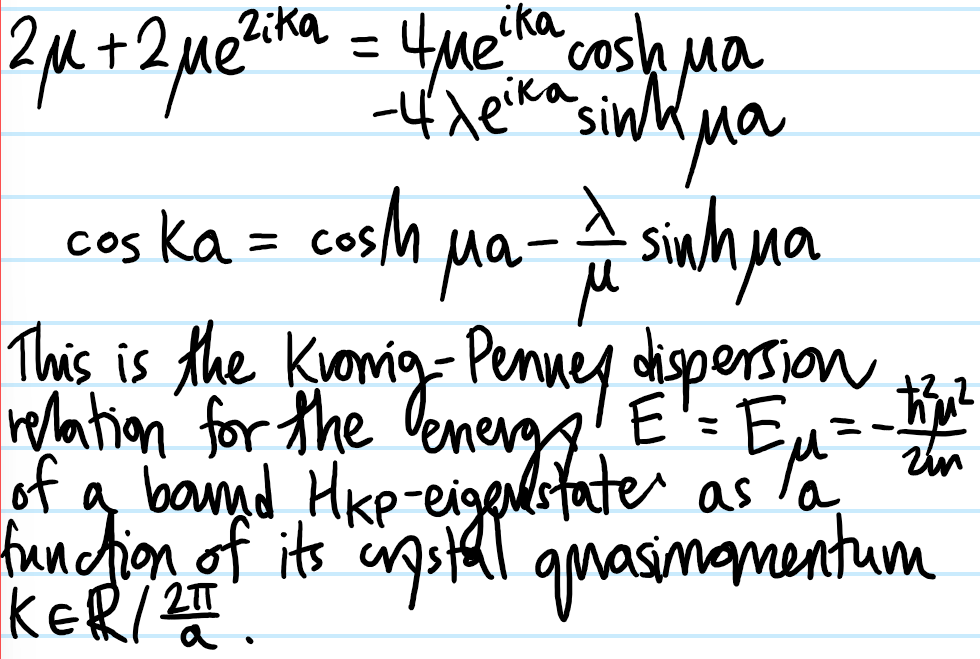 2μ + 2μe^{2iKa} = 4μe^{iKa} cosh μa
-4λe^{iKa} sinh μa
cos Ka = cosh μa - \frac{λ}{μ} sinh μa
This is the Kronig-Penney dispersion
relation for the energy E = E_μ = -\frac{ħ²μ²}{2m}
of a bound H_{KP}-eigenstate as a
function of its crystal quasimomentum
K ∈ ℝ / \frac{2π}{a}.